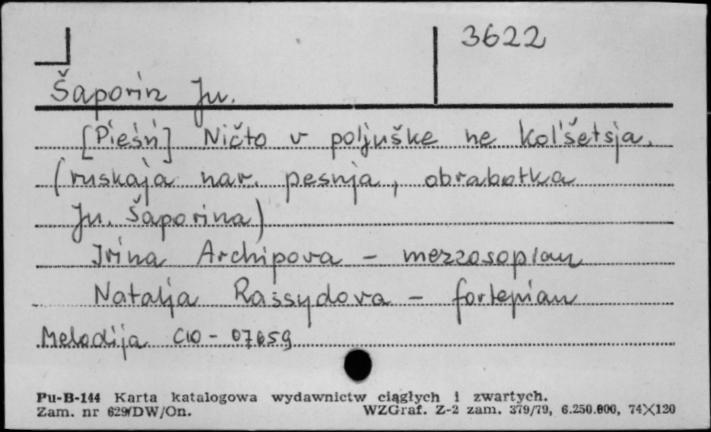 3622
Šaporin Ju.
[Pieśń] Ničto v poljuške ne kol'šetsja.
(ruskaja nar. pesnja, obrabotka
Ju. Šaporina)
Irina Archipova - mezzosopran
Natalja Rassydova - fortepian
Melodija C10-07659
Pu-B-144 Karta katalogowa wydawnictw ciągłych i zwartych.
Zam. nr 629/DW/On. WZGraf. Z-2 zam. 379/79, 6.250.000, 74X120